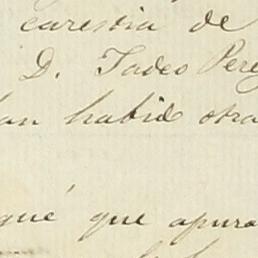 carestia de
D. Tadeo Pere
an habid otra
qué que apura